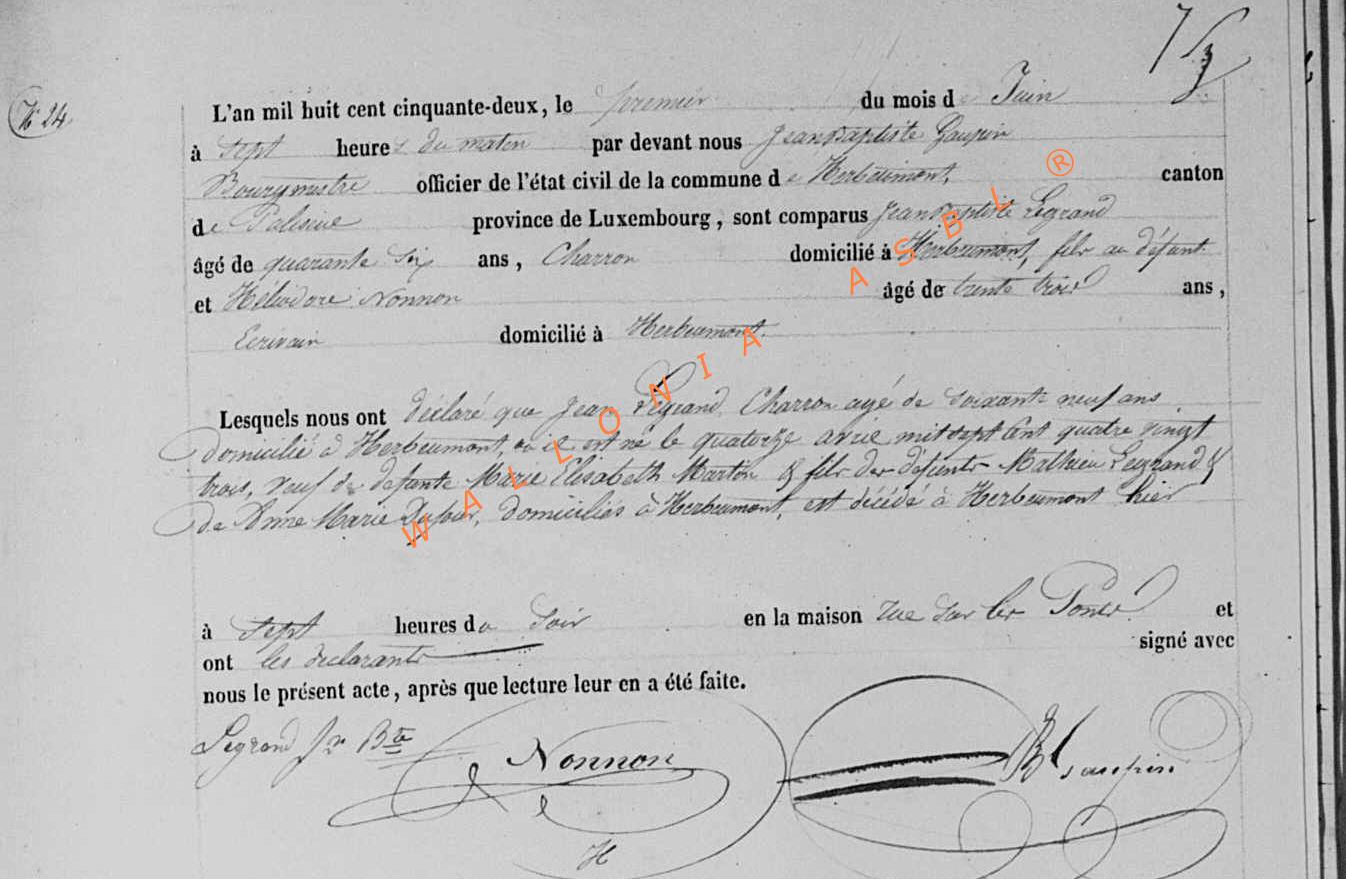 N° 24
L'an mil huit cent cinquante-deux, le premier du mois de Juin
à sept heures du matin par devant nous Jean Baptiste Gaupin
Bourgmestre officier de l'état civil de la commune de Herbeumont, canton
de Paliseul province de Luxembourg, sont comparus Jean Baptiste Legrand
âgé de quarante six ans, Charron domicilié à Herbeumont, fils au défunt
et Héliodore Nonnon âgé de trente trois ans,
Ecrivain domicilié à Herbeumont.
Lesquels nous ont déclaré que Jean Legrand Charron agé de soixante neuf ans
domicilié à Herbeumont, où il est né le quatorze avril mil sept cent quatre vingt
trois, veuf de défunte Marie Elisabeth Martin & fils des défunts Mathieu Legrand &
de Anne Marie Dufour, domiciliés à Herbeumont, est décédé à Herbeumont hier
à sept heures du soir en la maison rue sur les et
ont les déclarants signé avec
nous le présent acte, après que lecture leur en a été faite.
Legrand Jn Bte Nonnon Gaupin
WALLONIA ASBL ®